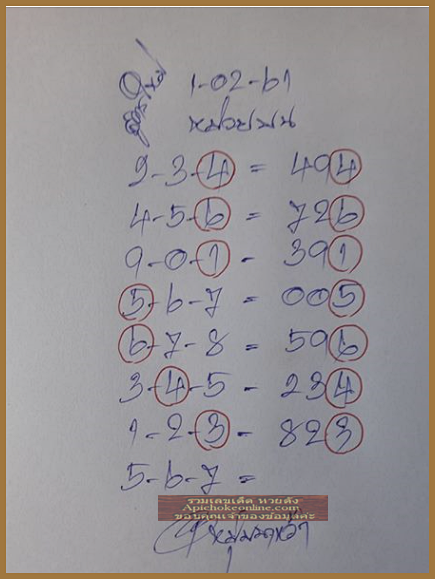 1-02-61
หน่วยบน
9-3-4 = 494
4-5-6 = 726
9-0-1 - 391
5-6-7 = 005
6-7-8 = 596
3-4-5 - 234
1-2-3 - 823
5-6-7 =
รวมเลขเด็ด หวยดัง
Aptchokeonline.com
ขอบคุณเจ้าของข้อมูลค่ะ